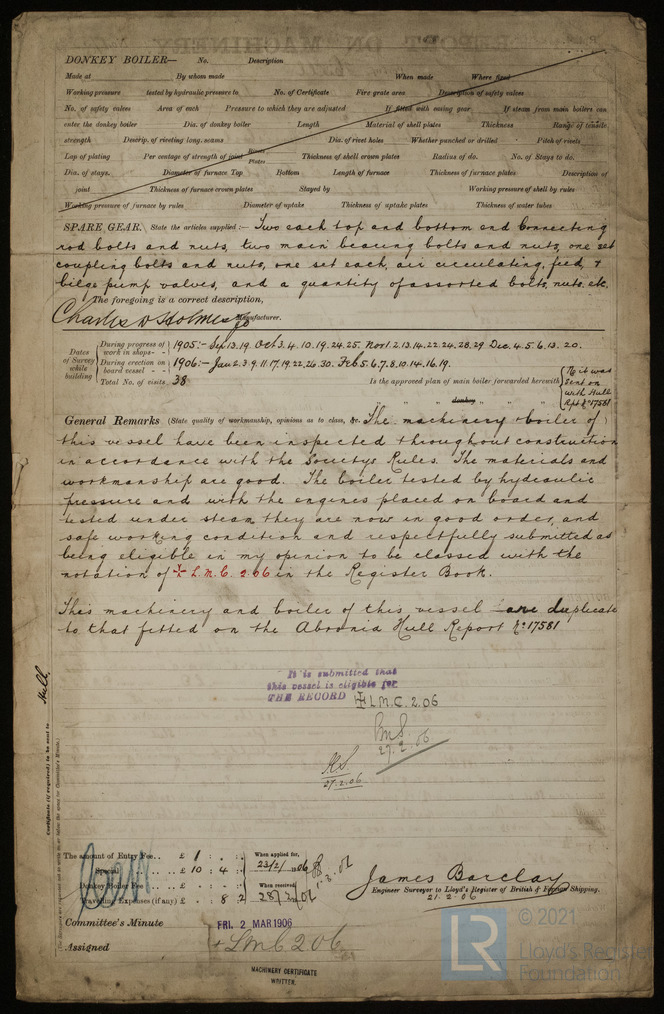 DONKEY BOILER— No. Description
Made at By whom made When made Where fixed
Working pressure tested by hydraulic pressure to No. of Certificate Fire grate area Description of safety valves
No. of safety valves Area of each Pressure to which they are adjusted If fitted with easing gear If steam from main boilers can
enter the donkey boiler Dia. of donkey boiler Length Material of shell plates Thickness Range of tensile
strength Descrip. of riveting long. seams Dia. of rivet holes Whether punched or drilled Pitch of rivets
Lap of plating Per centage of strength of joint Rivets Plates Thickness of shell crown plates Radius of do. No. of Stays to do.
Dia. of stays. Diameter of furnace Top Bottom Length of furnace Thickness of furnace plates Description of
joint Thickness of furnace crown plates Stayed by Working pressure of shell by rules
Working pressure of furnace by rules Diameter of uptake Thickness of uptake plates Thickness of water tubes
SPARE GEAR. State the articles supplied:— Two each top and bottom end connecting
rod bolts and nuts, two main bearing bolts and nuts, one set
coupling bolts and nuts, one set each, air circulating, feed, &
bilge pump valves, and a quantity of assorted bolts, nuts. etc.
The foregoing is a correct description,
Charles D Holmes & Co Manufacturer.
Dates of Survey while building
During progress of work in shops- - 1905:- Sep 13.19. Oct 3.4.10.19.24.25. Nov 1.2.13.14.22.24.28.29 Dec. 4.5.6.13.20.
During erection on board vessel - - 1906:- Jan 2.3.9.11.17.19.22.24.30. Feb 5.6.7.8.10.14.16.19.
Total No. of visits 38 Is the approved plan of main boiler forwarded herewith No it was
sent on
with Hull
Rpt No 17581
" " " donkey " " "
General Remarks (State quality of workmanship, opinions as to class, &c. The machinery & boiler of
this vessel have been inspected throughout construction
in accordance with the Societys Rules. The materials and
workmanship are good. The boiler tested by hydraulic
pressure and with the engines placed on board and
tested under steam, they are now in good order, and
safe working condition and respectfully submitted as
being eligible in my opinion to be classed with the
notation of + L.M.C. 2.06 in the Register Book.
This machinery and boiler of this vessel are duplicate
to that fitted on the Abronia Hull Report No 17581
It is submitted that
this vessel is eligible for
THE RECORD + L.M.C. 2.06
27.2.06
27.2.06
Certificate (if required) to be sent to Hull,
The amount of Entry Fee.. £ 1 : : When applied for,
Special .. £ 10 : 4 : 23/2/1906
Donkey Boiler Fee .. £ : : When received,
Travelling Expenses (if any) £ : 8 : 2 28/2/06
1.3.06
James Barclay
Engineer Surveyor to Lloyd's Register of British & Foreign Shipping.
21.2.06
Committee's Minute FRI. 2 MAR 1906
Assigned + LMC 2.06
MACHINERY CERTIFICATE
WRITTEN.
LR
© 2021
Lloyd's Register
Foundation